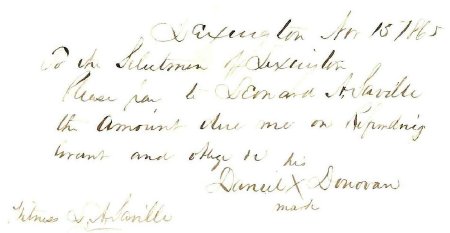 Lexington Nov 13 1865
To the Selectmen of Lexington
Please pay to Leonard A Saville
the amount due me on
and
his
Daniel X Donovan
mark
Witness L A Saville